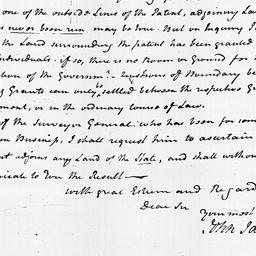 one of the outside Lines of the Patent, adjoining La
as never been run, may be true. But on Inquiry I
the Land surrounding the patent has been granted
individuals. if so, there is no Room or Ground for
tion of the Governmt. Questions of Boundary be
Grants can only settled between the respective G
ment, or in the ordinary course of Law.
of the Surveyor General: who has been for som
on Business, I shall request him to ascertain
adjoins any Land of the State, and shall withou
nicate to You the Result—
with great Esteem and Regard
Dear Sir
Your most
John Ja